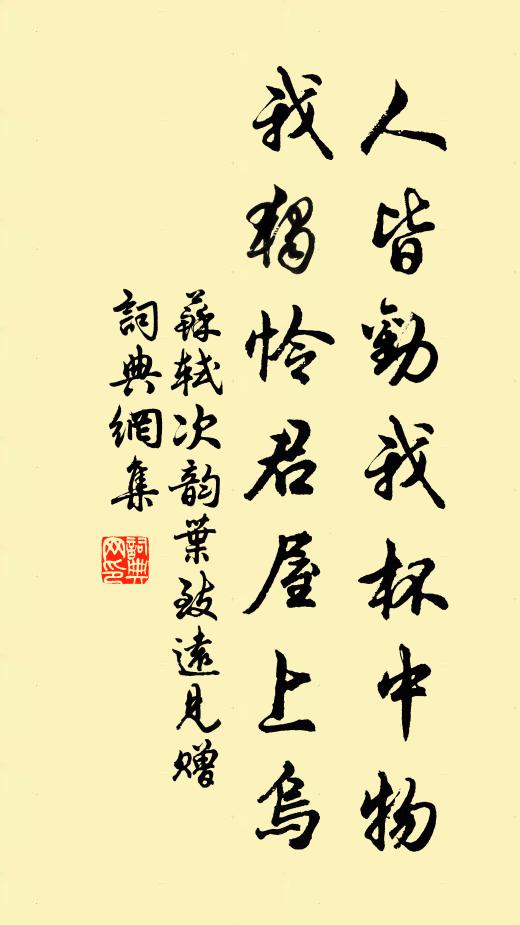 人皆勸我杯中物
我獨怜君屋上烏
蘇軾次韵葉致遠見贈
詞典網集
詞典網印